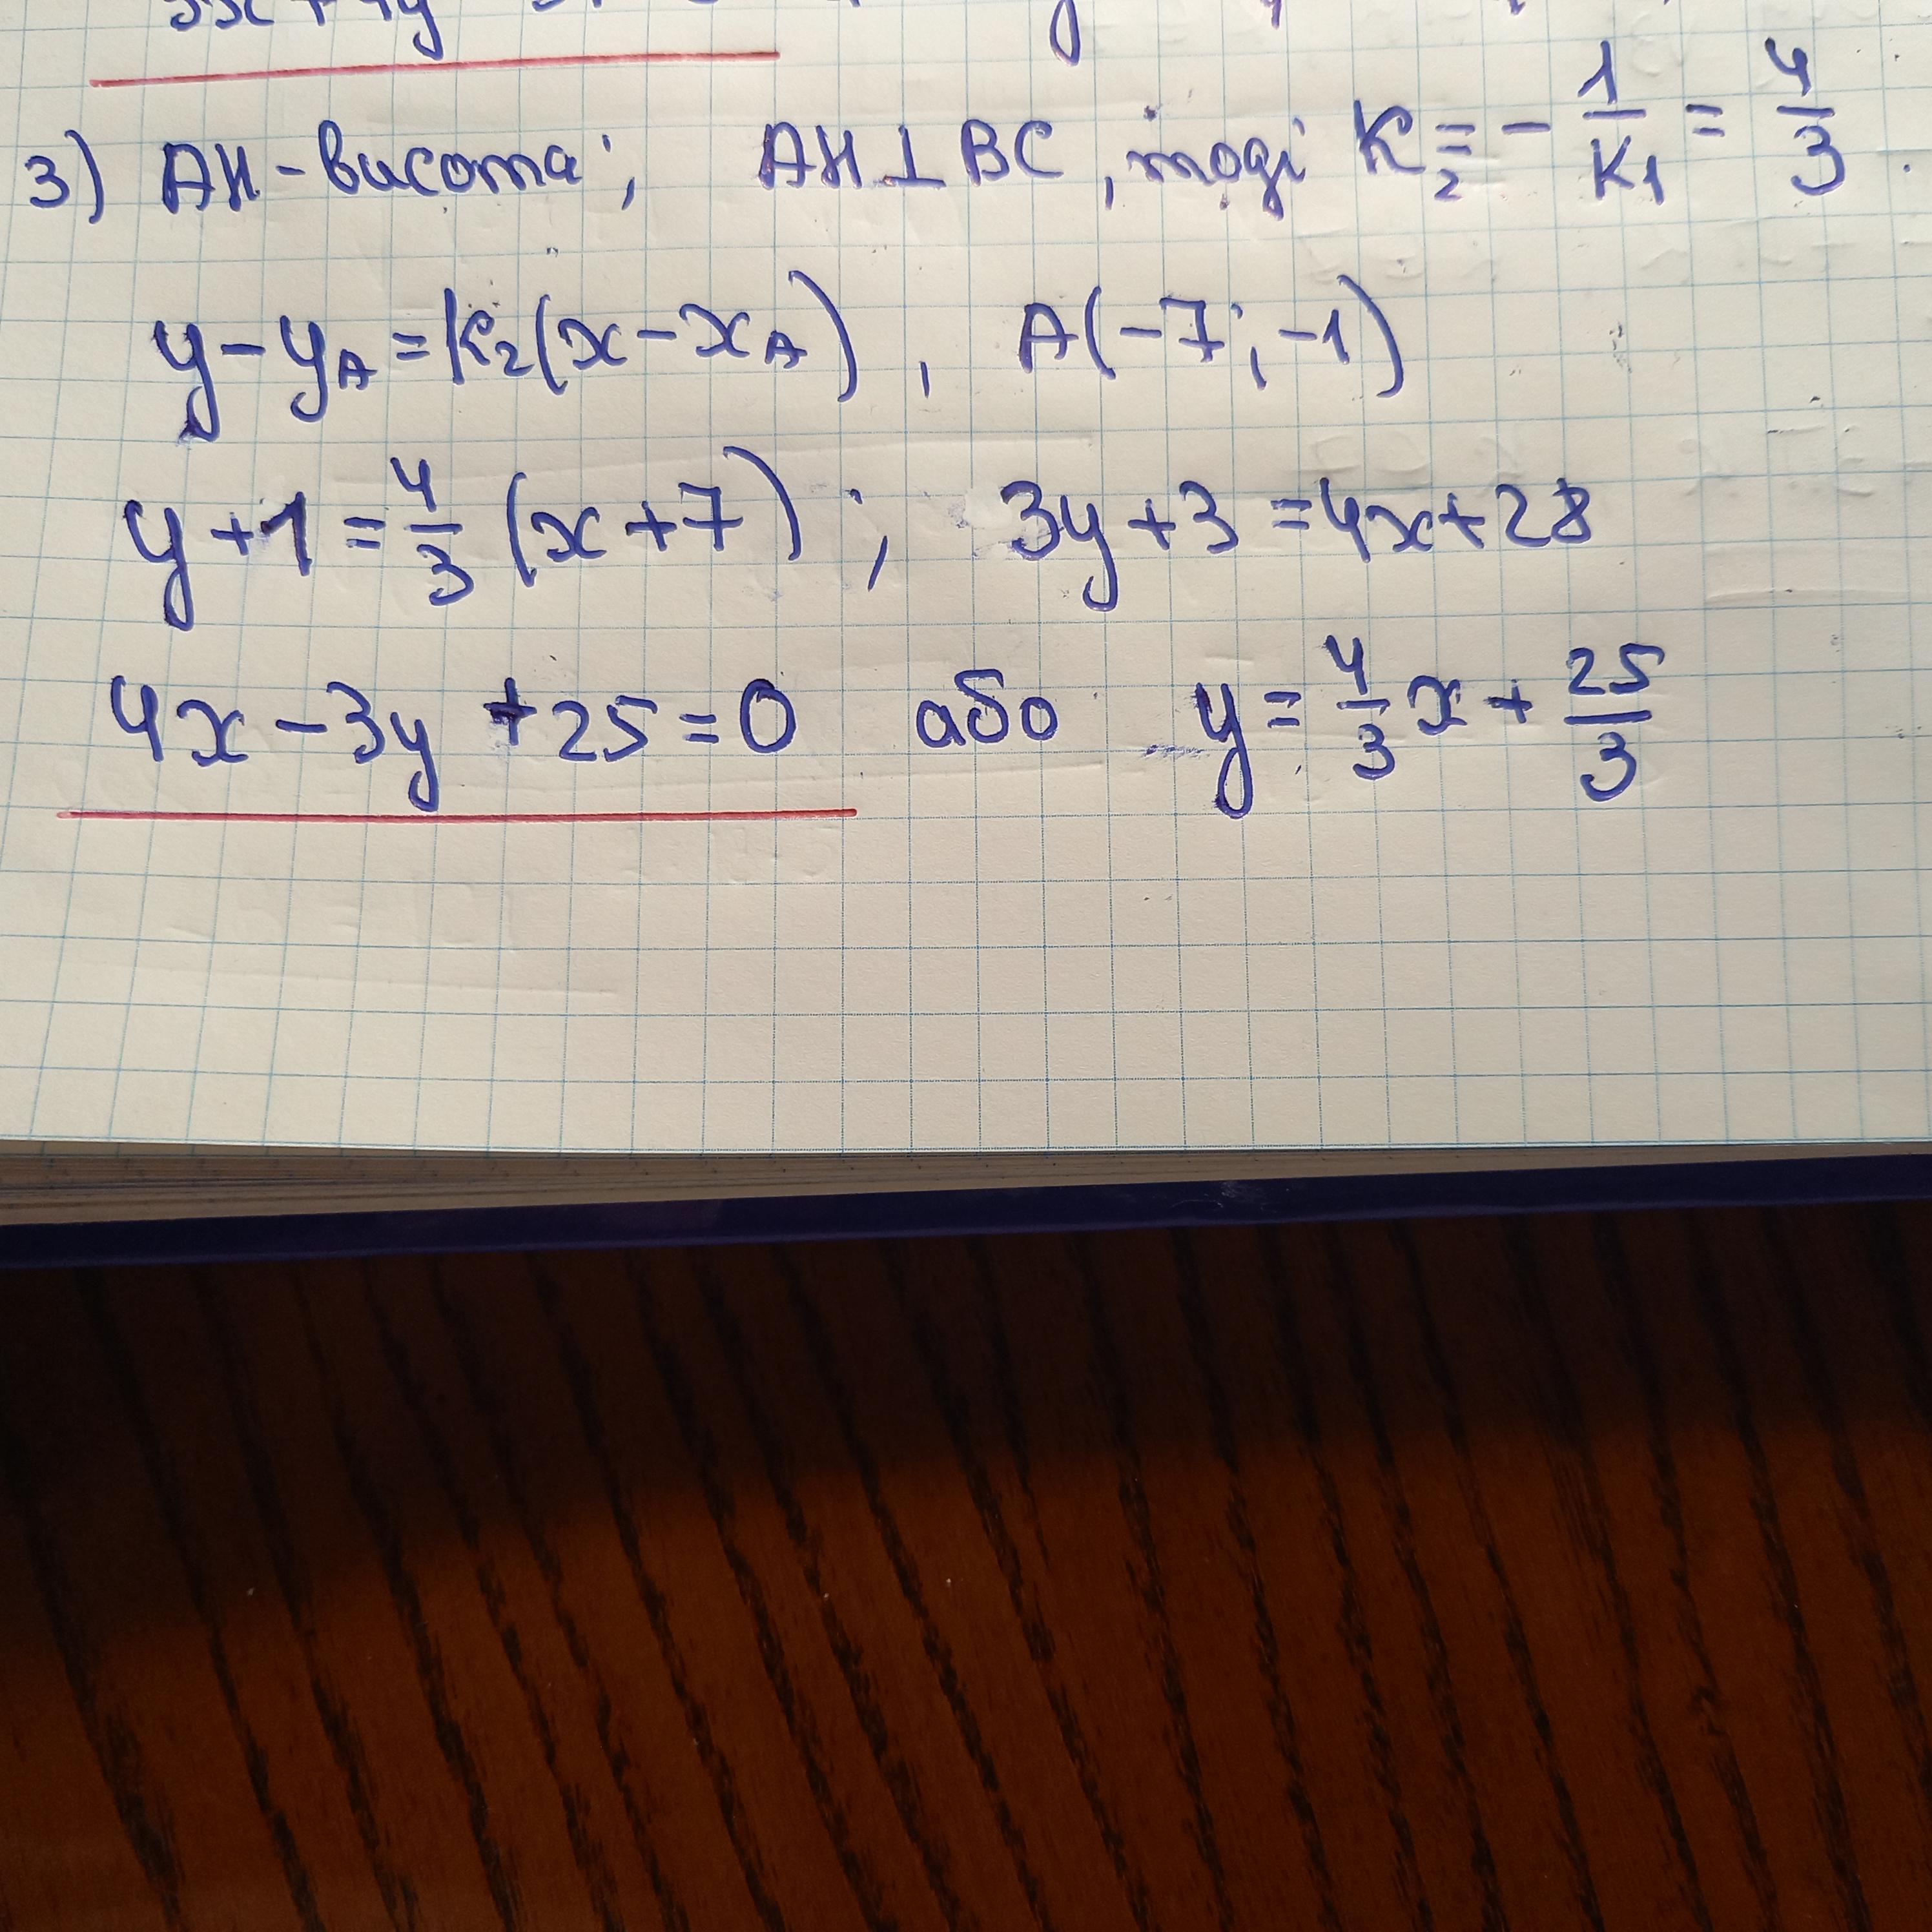 3) AH - висота; AH ⊥ BC, тоді K₂ = - 1/K₁ = 4/3.
y - yA = k₂(x - xA), A(-7; -1)
y + 1 = 4/3 (x + 7); 3y + 3 = 4x + 28
4x - 3y + 25 = 0 або y = 4/3 x + 25/3